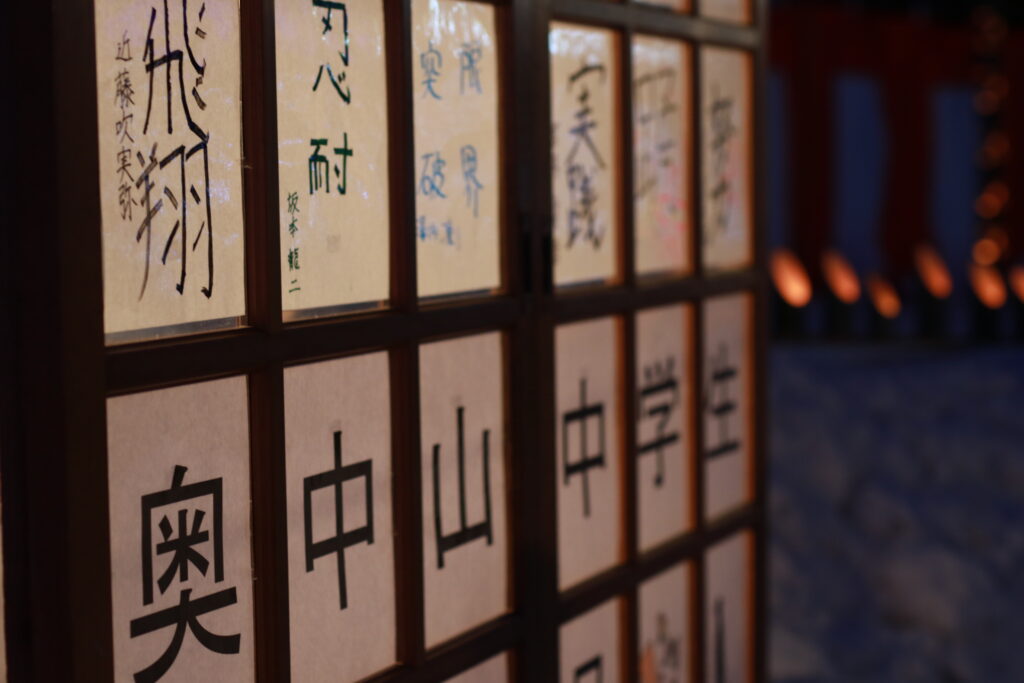 飛翔
近藤吹実弥
忍耐
坂本龍二
限界
突破
実践
努力
奥中山中学生